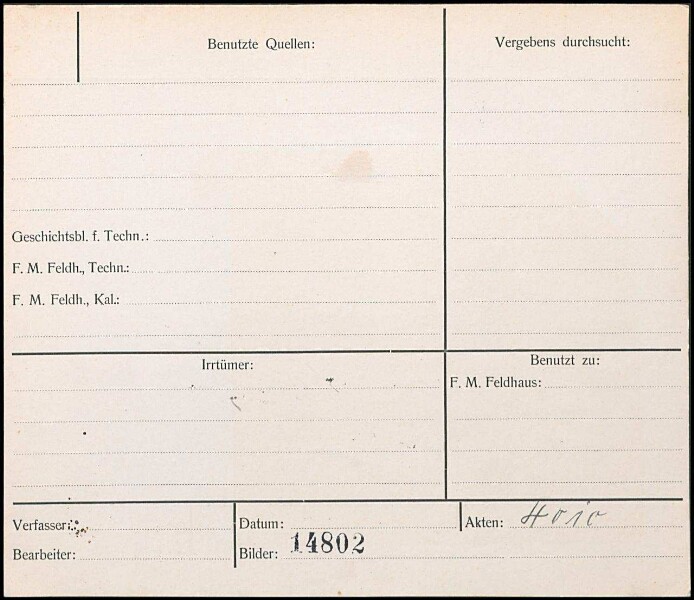 Benutzte Quellen:
Vergebens durchsucht:
Geschichtsbl. f. Techn.:
F. M. Feldh., Techn.:
F. M. Feldh., Kal.:
Irrtümer:
Benutzt zu:
F. M. Feldhaus:
Verfasser:
Datum:
Akten: 4010
Bearbeiter:
Bilder: 14802